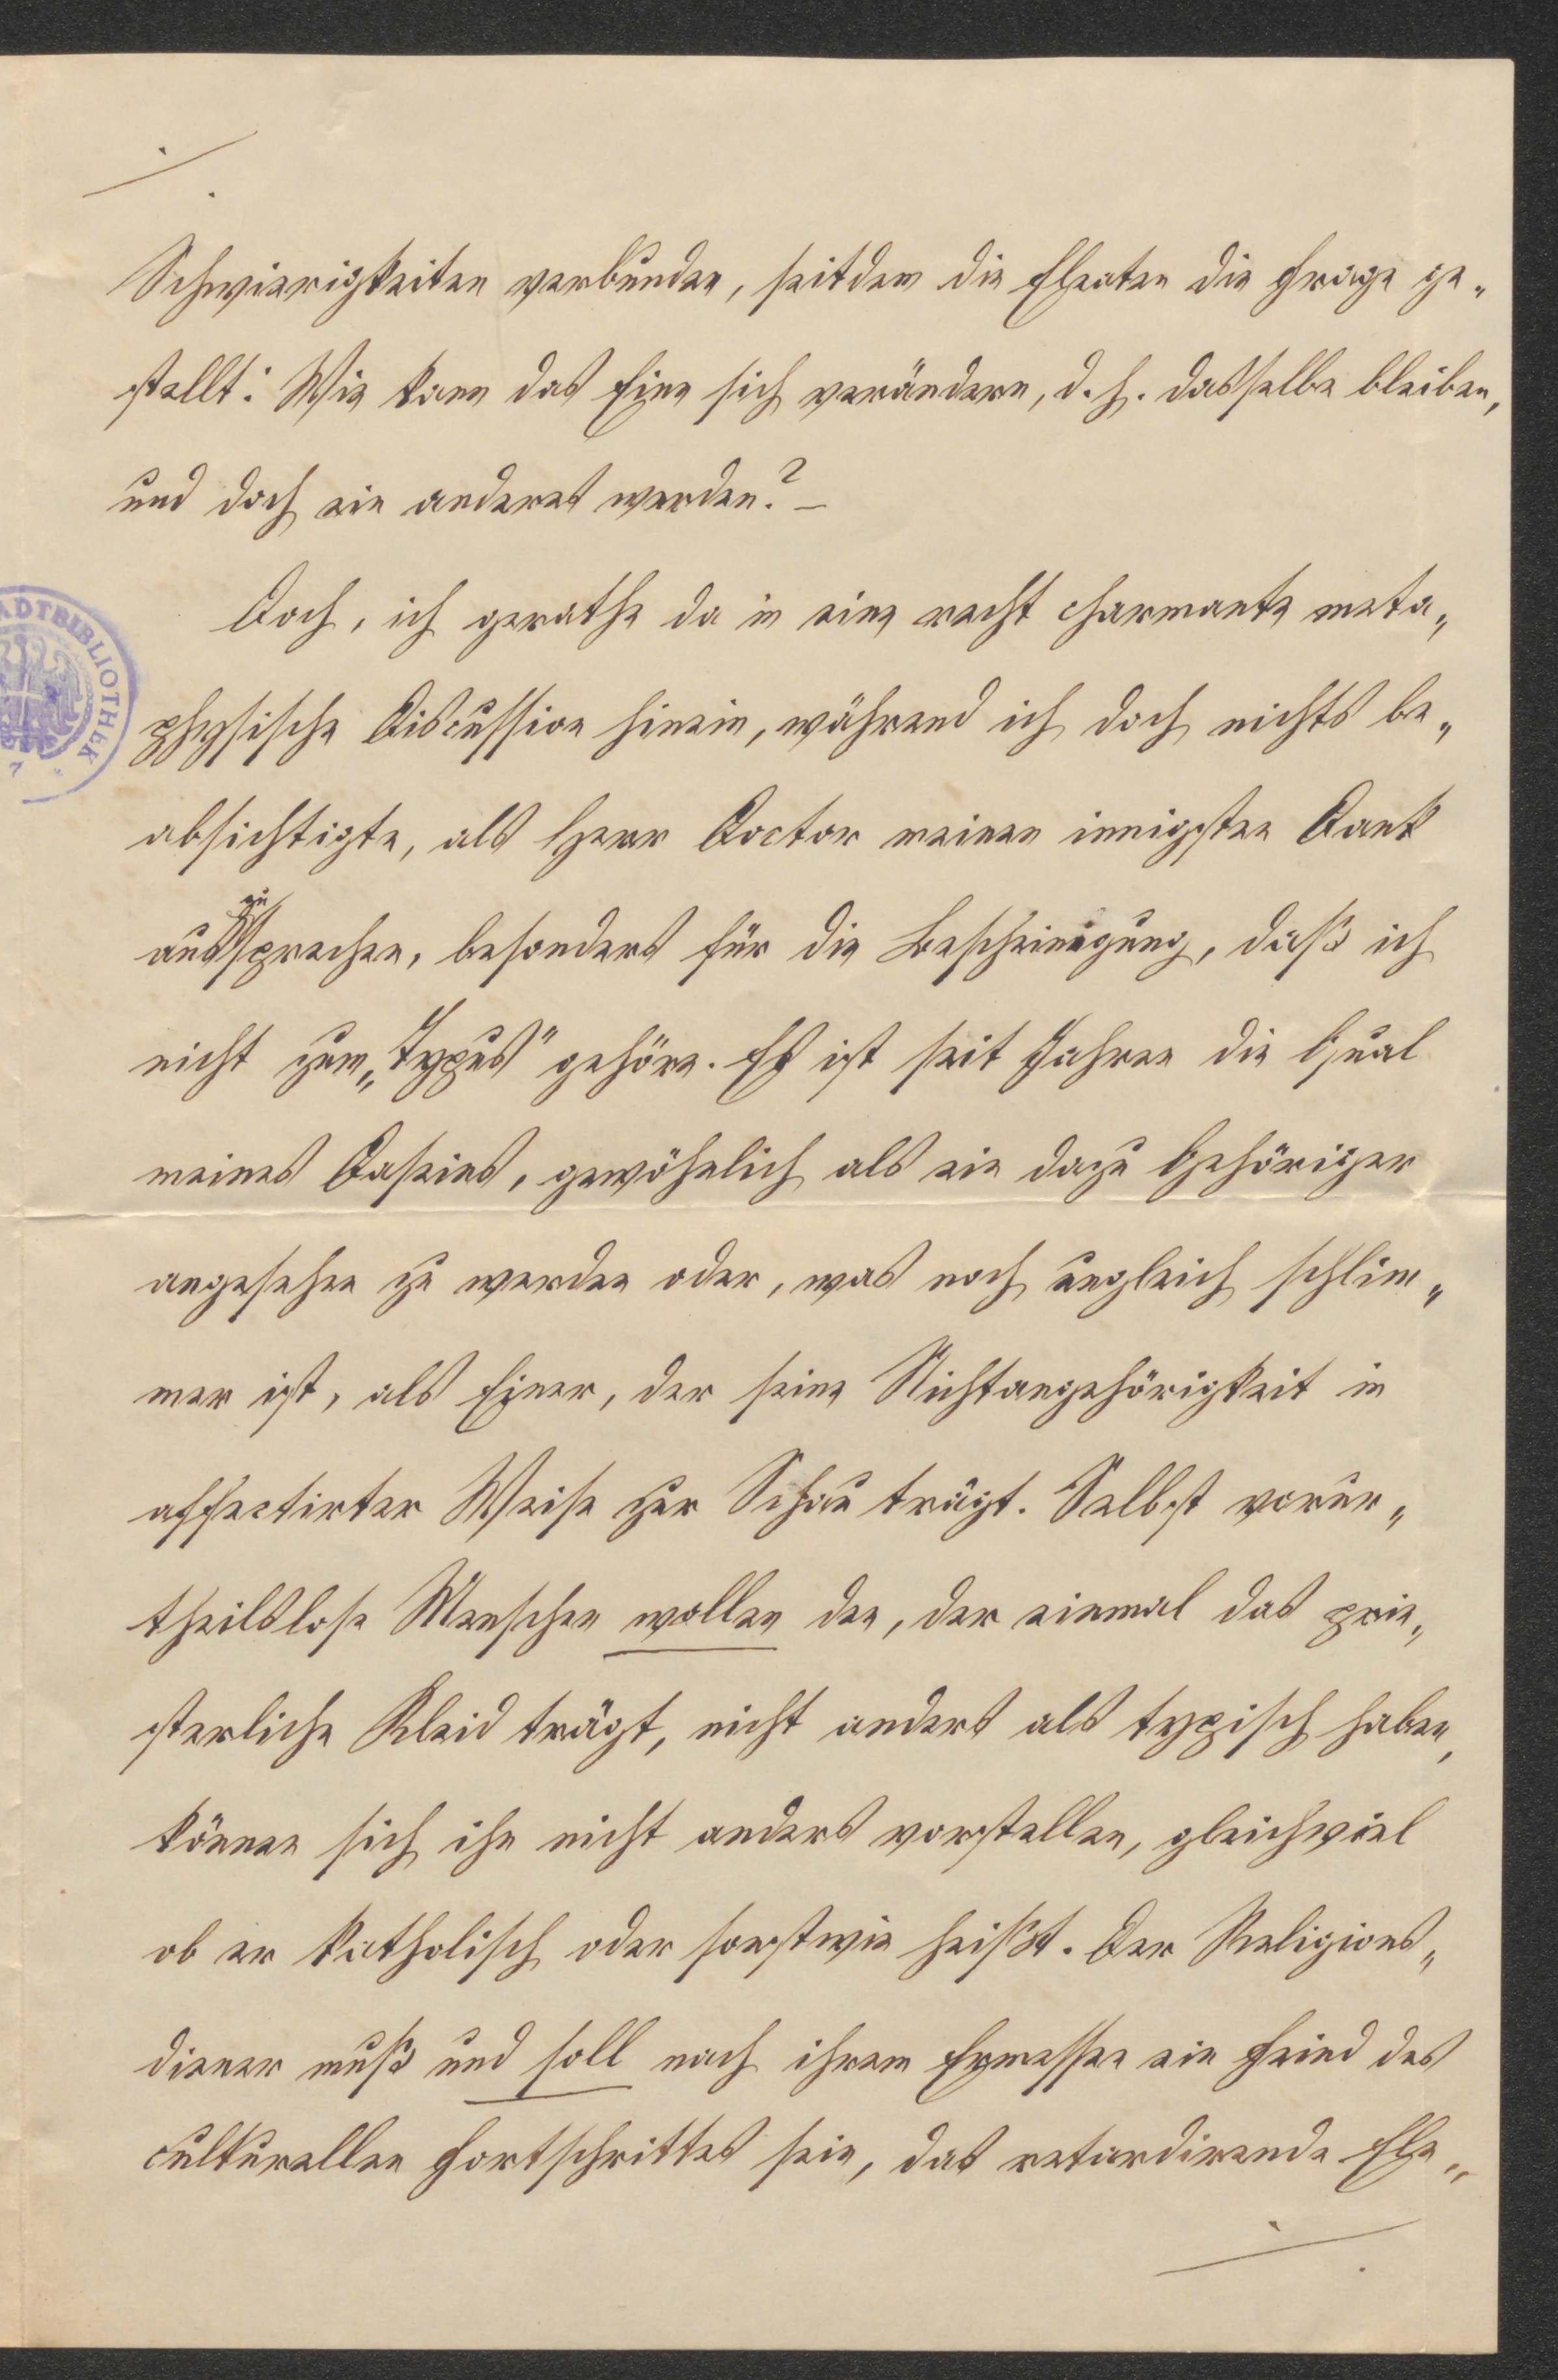 ./.
Schwierigkeiten verbunden, seitdem die Eleaten die Frage ge-
stellt: Wie kann das Eine sich verändern, d. h. dasselbe bleiben,
und doch ein anderes werden? –
Doch, ich gerathe da in eine recht charmante meta-
physische Discussion hinein, während ich doch nichts be-
absichtigte, als Herr Doctor meinen innigsten Dank
auszusprechen, besonders für die Bescheinigung, daß ich
nicht zum „Typus" gehöre. Es ist seit Jahren die Qual
meines Daseins, gewöhnlich als ein dazu Gehöriger
angesehen zu werden oder, was noch ungleich schlim-
mer ist, als Einer, der seine Nichtangehörigkeit in
affectirter Weise zur Schau trägt. Selbst vorur-
theilslose Menschen wollen den, der einmal das prie-
sterliche Kleid trägt, nicht anders als typisch haben,
können sich ihn nicht anders vorstellen, gleichviel
ob er katholisch oder sonstwie heißt. Der Religions-
diener muß und soll nach ihrem Ermessen ein Feind des
culturellen Fortschrittes sein, das retardirende Ele-
./.
STADTBIBLIOTHEK